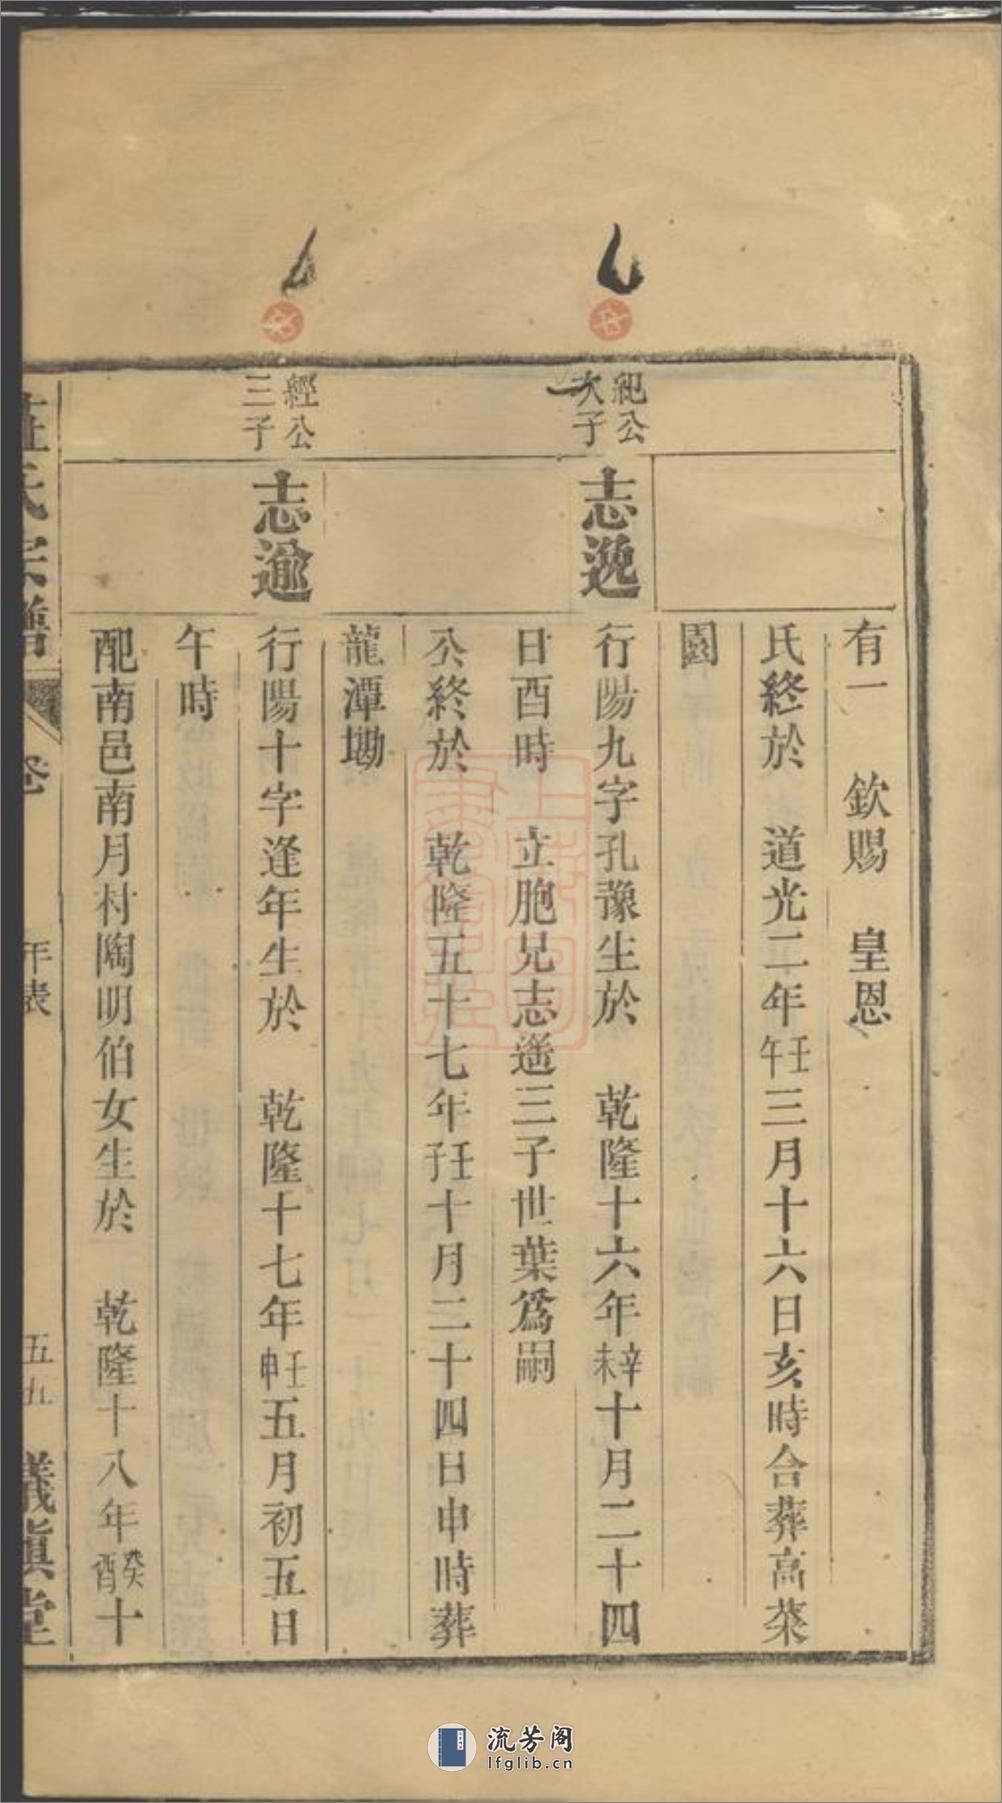 有一　欽賜　皇恩
氏終於　道光二年壬午三月十六日亥時合葬高菜
園
紀公次子
志逸
行陽九字孔豫生於　乾隆十六年辛未十月二十四
日酉時　立胞兄志遜三子世葉為嗣
公終於　乾隆五十七年壬子十月二十四日申時葬
龍潭墈
經公三子
志逾
行陽十字逢年生於　乾隆十七年壬申五月初五日
午時
配南邑南月村陶明伯女生於　乾隆十八年癸酉十
莊氏宗譜
卷
年表
五九
議慎堂
上海圖書館藏
流芳阁
lfglib.cn